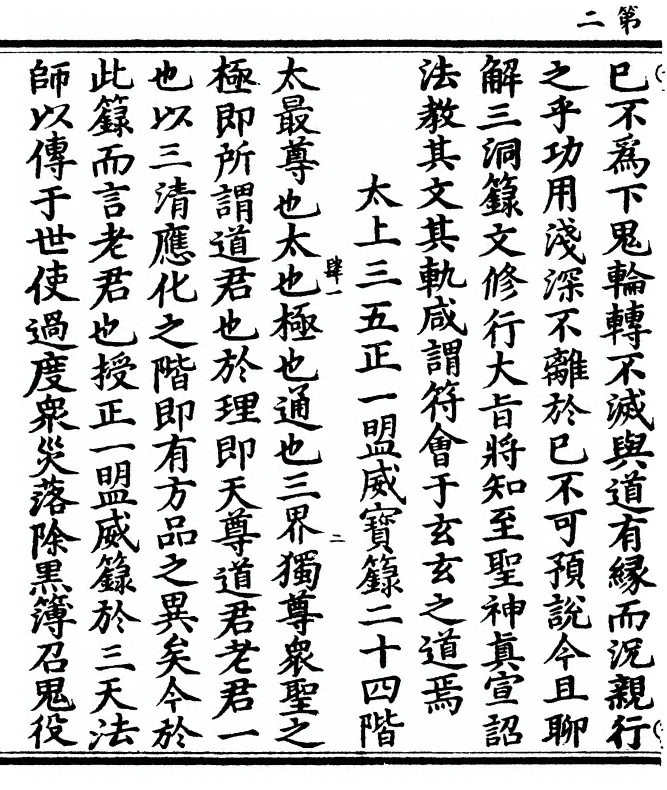 第二
已不爲下鬼輪轉不滅與道有緣而況親行
之乎功用淺深不離於已不可預說今且聊
解三洞籙文修行大旨將知至聖神真宣詔
法教其文其軌咸謂符會于玄玄之道焉
太上三五正一盟威寶籙二十四階
肆一
二
太最尊也太也極也通也三界獨尊衆聖之
極即所謂道君也於理即天尊道君老君一
也以三清應化之階即有方品之異矣今於
此籙而言老君也授正一盟威籙於三天法
師以傳于世使過度衆災落除黑簿召鬼役